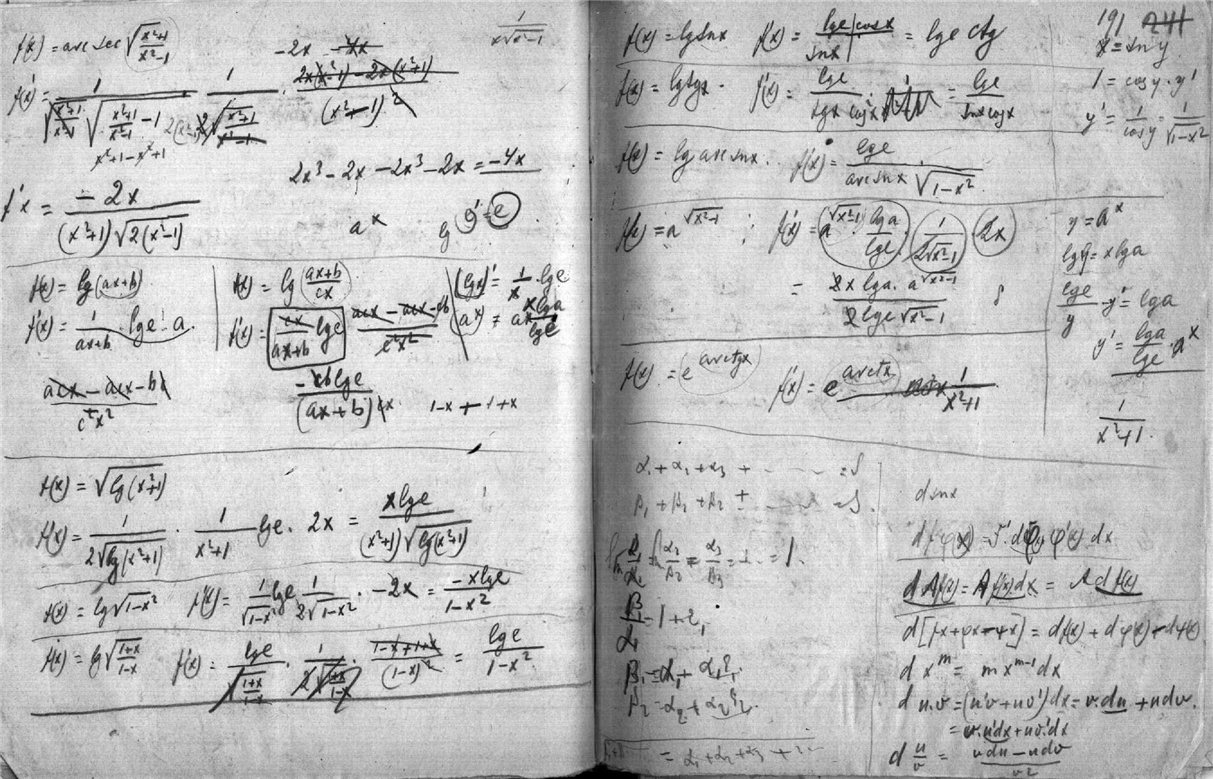 f(x) = arc sec √((x²+1)/(x²-1))
1/(x√(x²-1))
-2x -4x
f'(x) = 1/(√((x²+1)/(x²-1)) √((x²+1)/(x²-1) - 1)) · 1/(2√((x²+1)/(x²-1))) · (2x(x²-1) - 2x(x²+1))/(x²-1)²
x²+1-x²+1
2x³ - 2x - 2x³ - 2x = -4x
f'x = -2x/((x²+1)√(2(x²-1)))
aˣ
f(x) = lg(ax+b)
f'(x) = 1/(ax+b) · lge · a.
f(x) = lg((ax+b)/cx)
f'(x) = cx/(ax+b) lge · (acx - acx - cb)/(c²x²)
(lgx)' = 1/x · lge
(aˣ)' = aˣ lga/lge
(acx - acx - bc)/(c²x²)
-cb lge/((ax+b)cx)
1-x + 1+x
f(x) = √lg(x²+1)
f'(x) = 1/(2√lg(x²+1)) · 1/(x²+1) lge · 2x = xlge/((x²+1)√lg(x²+1))
f(x) = lg√(1-x²) f'(x) = 1/√(1-x²) lge · 1/(2√(1-x²)) · -2x = -xlge/(1-x²)
f(x) = lg√((1+x)/(1-x)) f'(x) = lge/√((1+x)/(1-x)) · 1/(2√((1+x)/(1-x))) · (1-x+1+x)/(1-x)² = lge/(1-x²)
19) 241
f(x) = lgsnx f'(x) = lge cosx/snx = lge ctg
x = sn y
f(x) = lgtgx · f'(x) = lge/(tgx cos²x) = lge/(snx cosx)
1 = cosy · y'
y' = 1/cosy = 1/√(1-x²)
f(x) = lg arc snx. f'(x) = lge/(arc snx √(1-x²))
f(x) = a^√(x²-1) ; f'(x) = a^√(x²-1) lga/lge · 1/(2√(x²-1)) · 2x
= 2x lga · a^√(x²-1)/(2 lge √(x²-1))
y = aˣ
lgy = x lga
lge/y · y' = lga
y' = lga/lge · aˣ
f(x) = e^(arctgx) f'(x) = e^(arctx) 1/(x²+1)
1/(x²+1).
α₁ + α₂ + α₃ + ... = S
β₁ + β₂ + β₂ + ... = S.
α₂/β₂ = α₃/β₃ = ... = 1.
β/α = 1 + ε₁
β₁ = α₁ + α₁ε₁.
β₂ = α₂ + α₂ε₂.
= α₁ + α₂ + α₃ + ...
d snx
d Af(x) = A f'(x) dx = A df(x)
d[fx + φx - ψx] = df(x) + dφ(x) - dψ(x)
d xᵐ = m xᵐ⁻¹ dx
d u.v = (u'v + uv')dx = v.du + udv.
= v.u'dx + uv'dx
d u/v = (vdu - udv)/v²